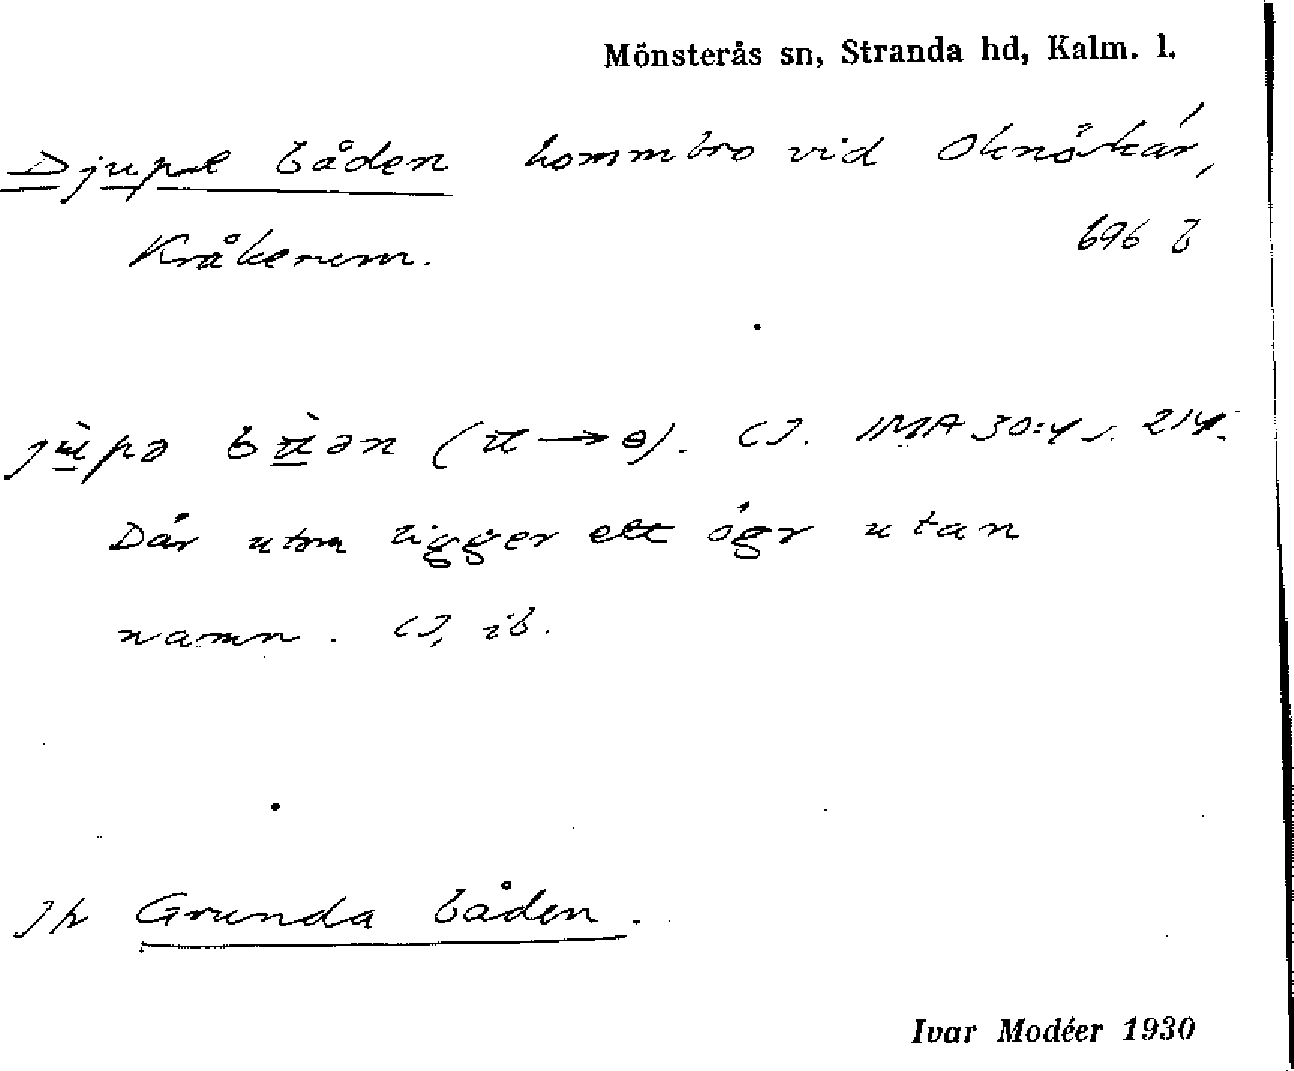 Mönsterås sn, Stranda hd, Kalm. l.
Djupe båden hommbro vid Oknöskär,
Kråkerum. 696 b
jùpə bùən (u → ɵ). CJ. IMA 30:4 s. 214.
Där utom ligger ett ögr utan
namn. CJ, ib.
Jfr Grunda båden.
Ivar Modéer 1930